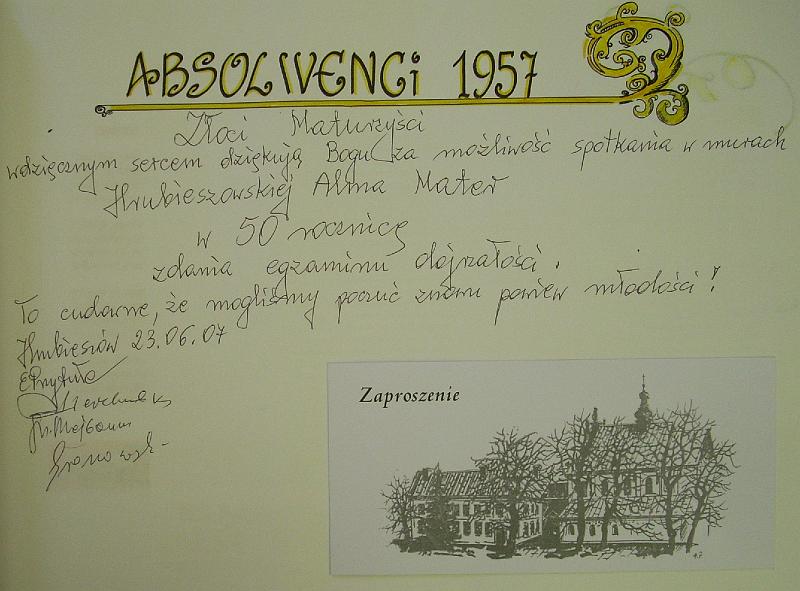 ABSOLWENCi 1957
Złoci Maturzyści
wdzięcznym sercem dziękują Bogu za możliwość spotkania w murach
Hrubieszowskiej Alma Mater
w 50 rocznicę
zdania egzaminu dojrzałości.
To cudowne, że mogliśmy poczuć znowu powiew młodości!
Hrubieszów 23.06.07
EPrzytuła
Zaproszenie